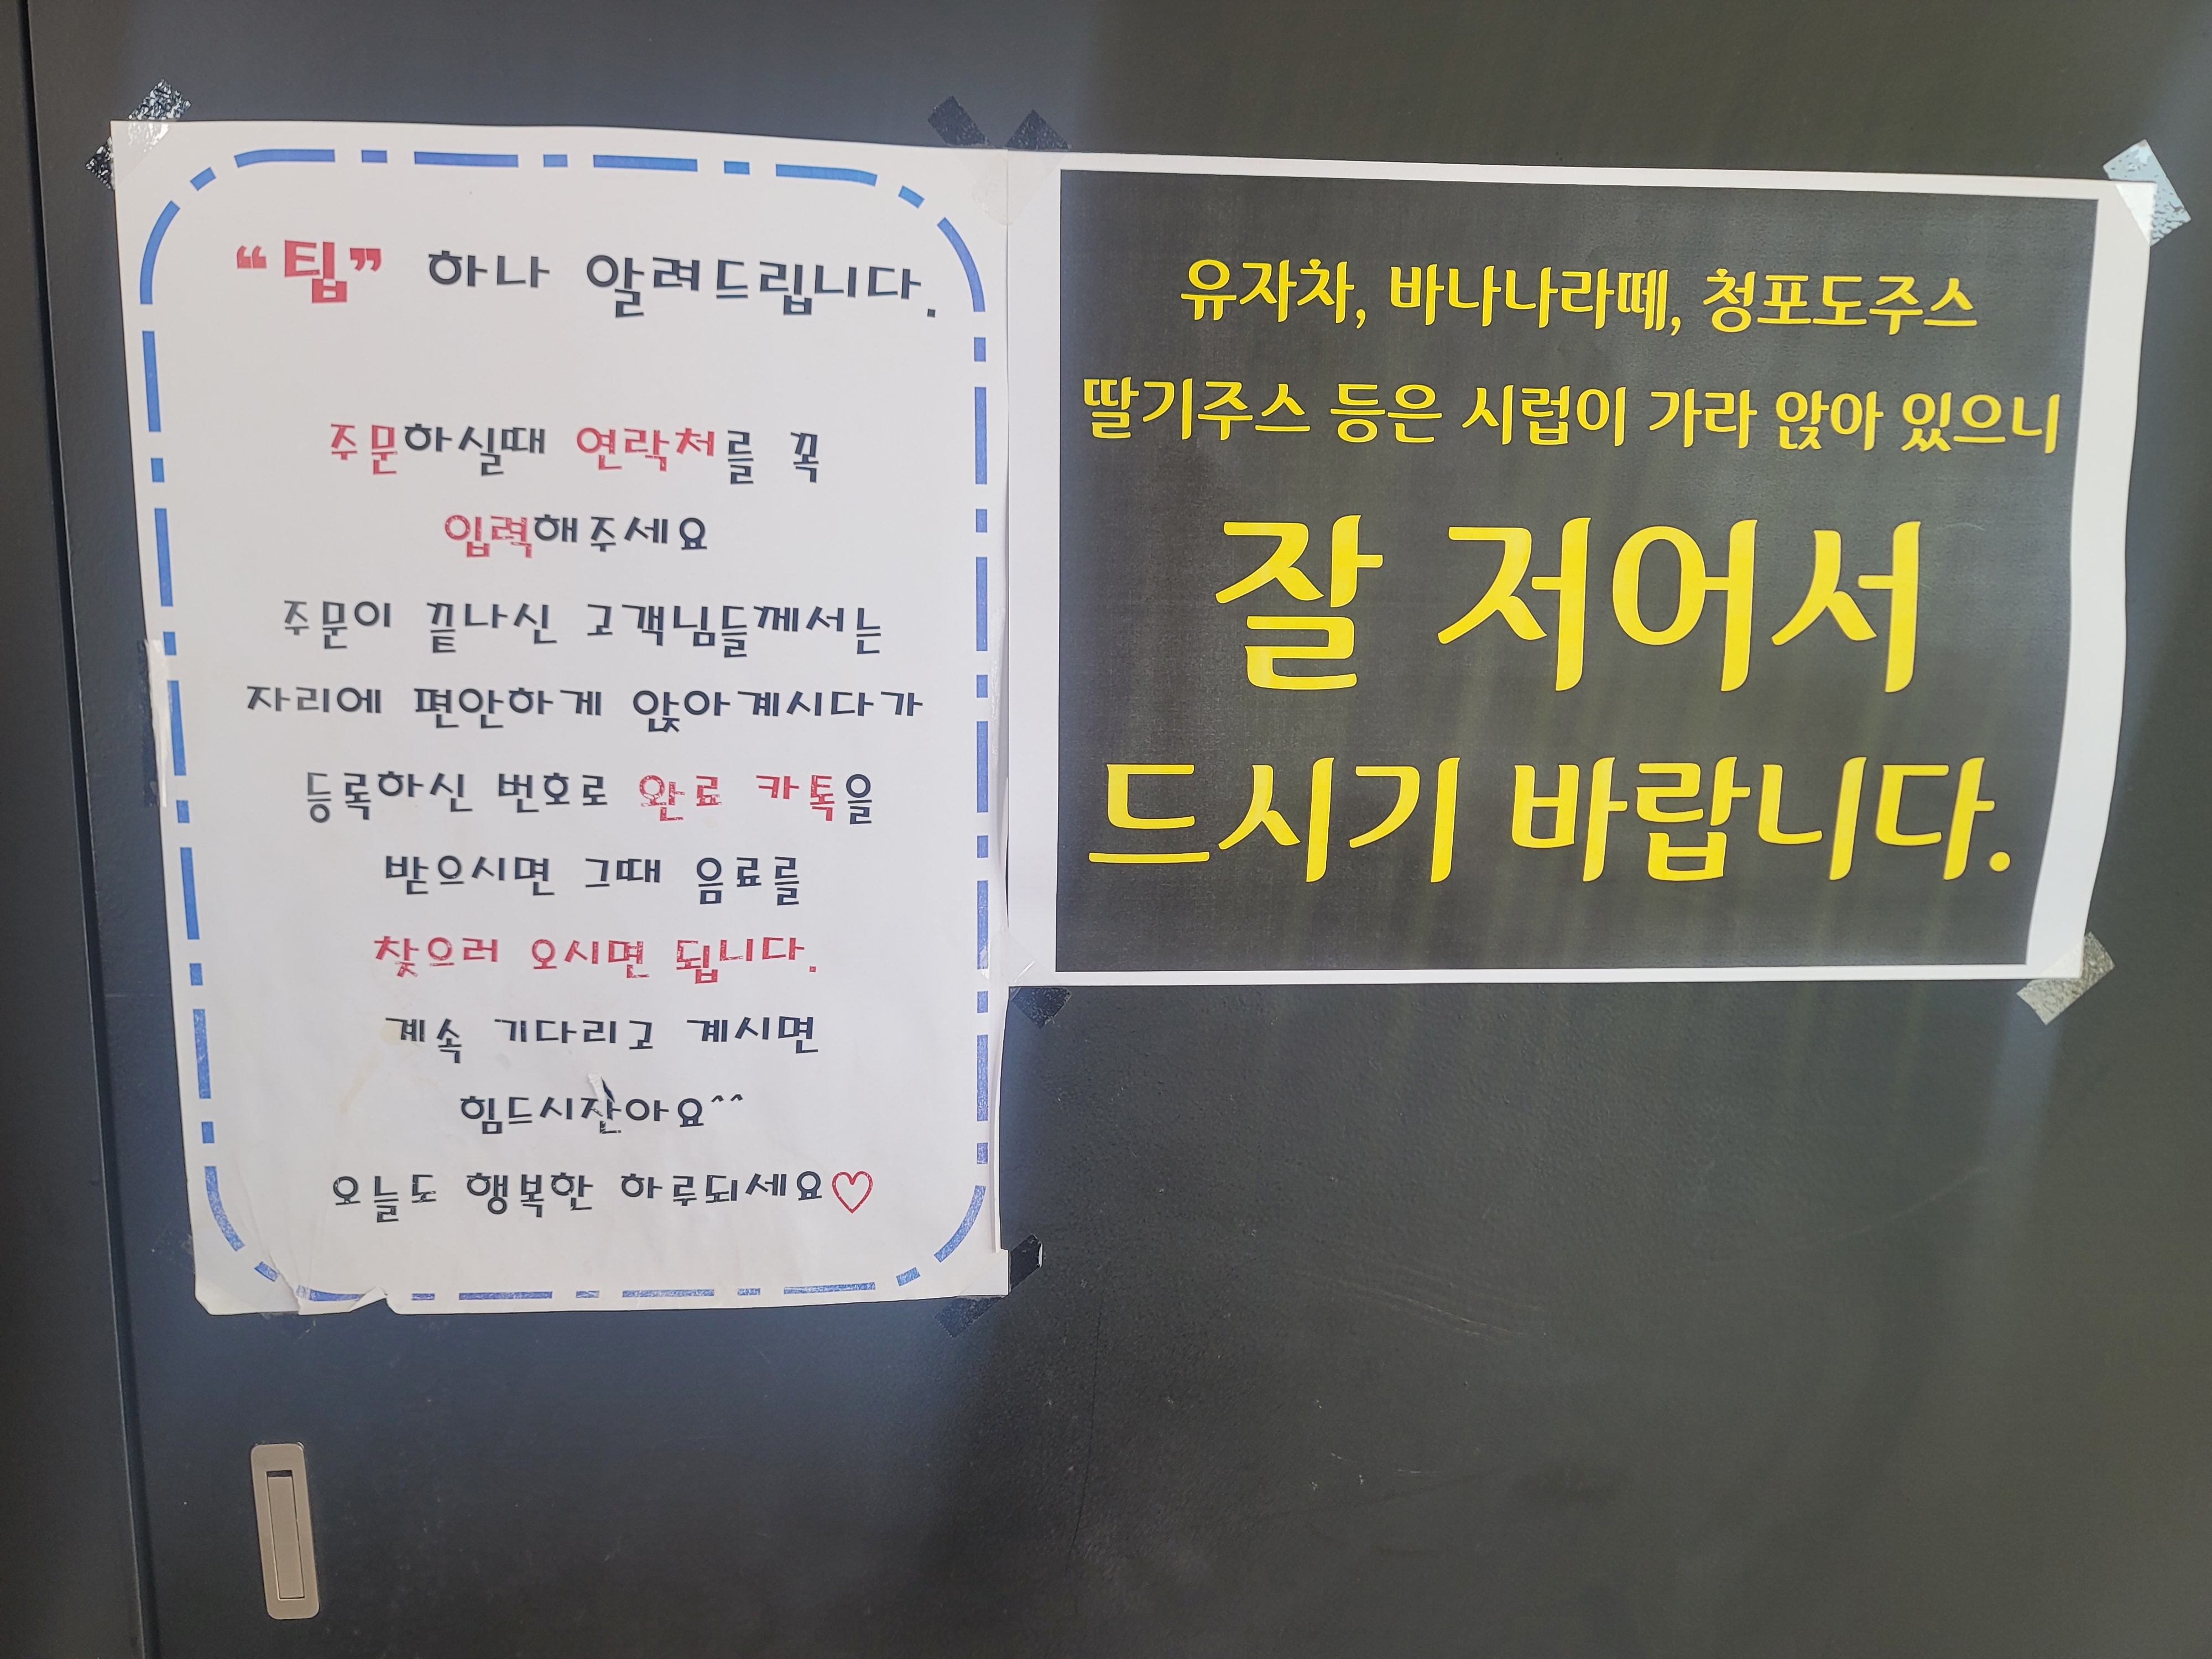 “팁” 하나 알려드립니다.
주문하실때 연락처를 꼭
입력해주세요
주문이 끝나신 고객님들께서는
자리에 편안하게 앉아계시다가
등록하신 번호로 완료 카톡을
받으시면 그때 음료를
찾으러 오시면 됩니다.
계속 기다리고 계시면
힘드시잖아요^^
오늘도 행복한 하루되세요♡
유자차, 바나나라떼, 청포도주스
딸기주스 등은 시럽이 가라 앉아 있으니
잘 저어서
드시기 바랍니다.